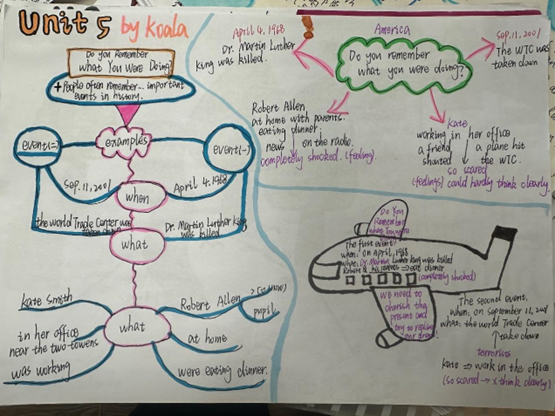 Unit 5 by koala
Do you Remember
What You Were Doing?
+People often remember... important
events in history.
examples
event(一)
event(二)
Sep.11,2001
when
April 4.1968
the world Trade Center was
taken down
what
Dr. Martin Luther King
was killed
Kate Smith
in her office
near the two towers
was working
what
Robert Allen
pupil
at home
were eating dinner.
April 4,1968
Dr. Martin Luther
king was killed.
America
Do you remember
what you were doing?
Sep.11,2001
The WTC was
taken down
Robert Allen
at home with parents.
eating dinner.
news on the radio.
completely shocked. (feeling)
Kate
working in her office
a friend a plane hit
shouted the WTC.
so scared
(feelings) could hardly think clearly.
Do You
Remember
The first event:
when: on April,1968
Dr. Martin Luther king was killed
Robert & his parents eat dinner
(completely shocked)
We need to
cherish the
present and
try to realise
our dream
The second event,
when, on september 11, 2001
what: the world Trade Center
take down
terrorists
Kate ⇒ work in the office
(so scared → x think clearly)